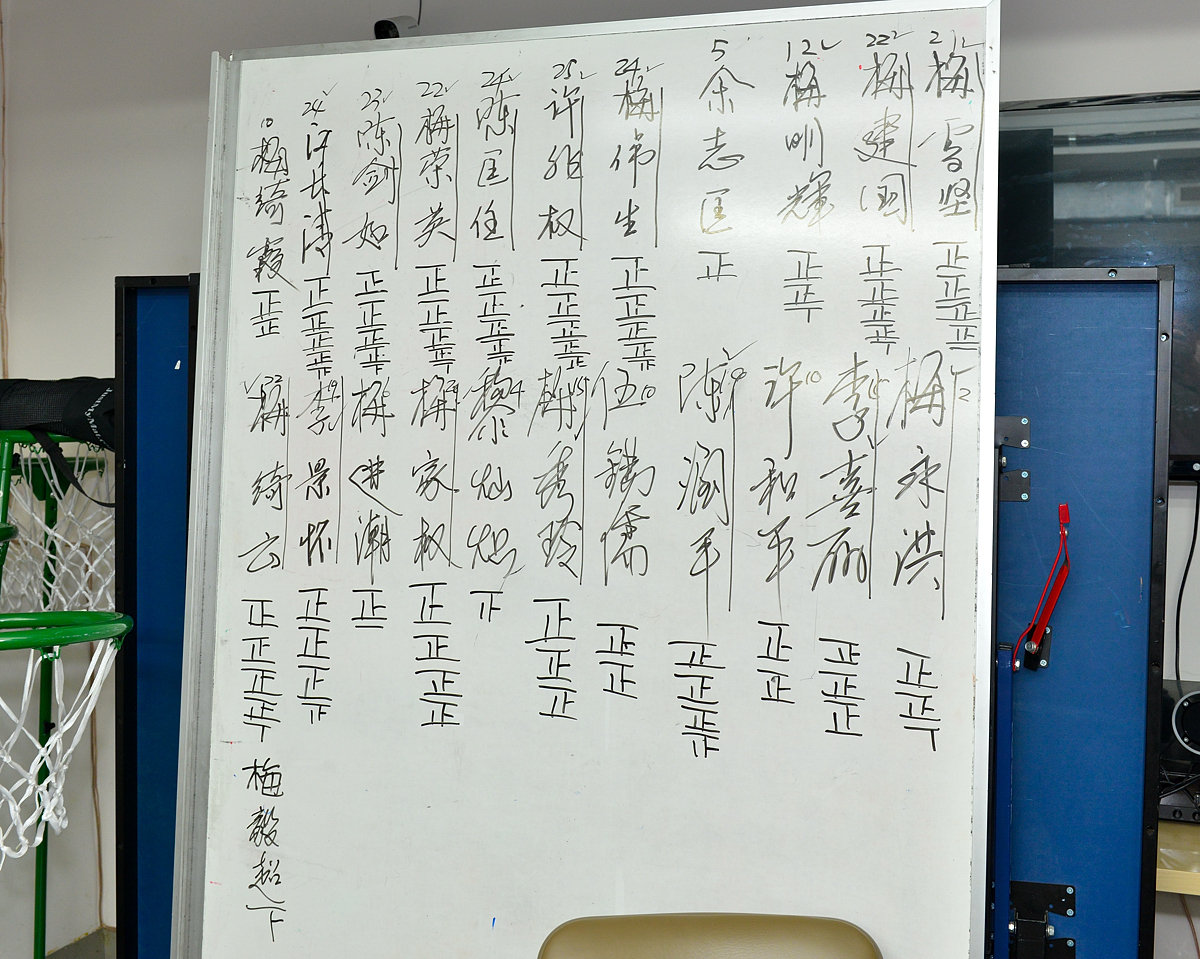 21 梅雪坚 正正正正
22 梅建国 正正正正
12 梅明輝 正正
5 余志匡 正
24 梅伟生 正正正正
25 许维权 正正正正正
24 陈匡住 正正正正
22 梅荣英 正正正正
23 陈剑如 正正正正
24 正正正正
10 梅绮霞 正正
梅永洪 12 正正
李喜丽 正正正
许和平 10 正正
陈润平 19 正正正
伍锡儒 10 正正
梅秀玲 15 正正正
黎灿焜 4
梅家权 正正正正
梅进潮 正
李景怀 19 正正正
梅绮云 正正正正
梅毅超